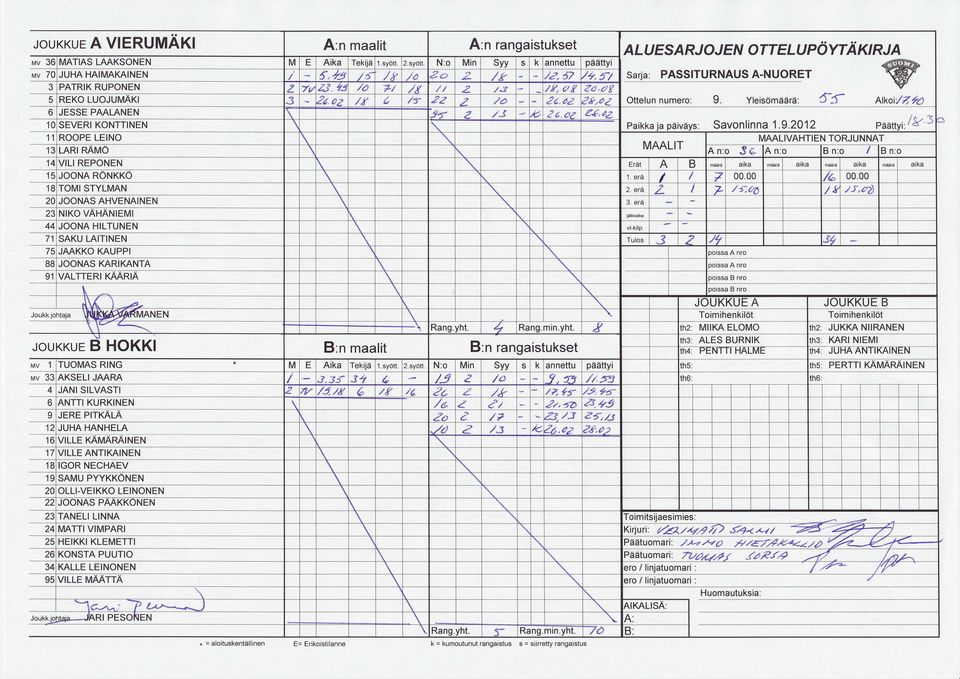 JOUKKUE A VIERUMÄKI
MV 36 MATIAS LAAKSONEN
MV 70 JUHA HAIMAKAINEN
3 PATRIK RUPONEN
5 REKO LUOJUMÄKI
6 JESSE PAALANEN
10 SEVERI KONTTINEN
11 ROOPE LEINO
13 LARI RÄMÖ
14 VILI REPONEN
15 JOONA RÖNKKÖ
18 TOMI STYLMAN
20 JOONAS AHVENAINEN
23 NIKO VÄHÄNIEMI
44 JOONA HILTUNEN
71 SAKU LAITINEN
75 JAAKKO KAUPPI
88 JOONAS KARIKANTA
91 VALTTERI KÄÄRIÄ
Joukk.johtaja JUKKA VARMANEN
A:n maalit
M E Aika Tekijä 1.syött. 2.syött.
1 - 5.49 15 18 10
2 YV 23.43 10 71 18
3 - 26.02 18 6 15
A:n rangaistukset
N:o Min Syy s k annettu päättyi
20 2 18 - - 12.51 14.51
11 2 13 - - 18.08 20.08
22 2 10 - - 26.02 28.02
95 2 13 - K 26.02 28.02
Rang.yht. 4 Rang.min.yht. 8
JOUKKUE B HOKKI
MV 1 TUOMAS RING *
MV 33 AKSELI JAARA
4 JANI SILVASTI
6 ANTTI KURKINEN
9 JERE PITKÄLÄ
12 JUHA HANHELA
16 VILLE KÄMÄRÄINEN
17 VILLE ANTIKAINEN
18 IGOR NECHAEV
19 SAMU PYYKKÖNEN
20 OLLI-VEIKKO LEINONEN
22 JOONAS PÄÄKKÖNEN
23 TANELI LINNA
24 MATTI VIMPARI
25 HEIKKI KLEMETTI
26 KONSTA PUUTIO
34 KALLE LEINONEN
95 VILLE MÄÄTTÄ
Joukk.johtaja JARI PESONEN
B:n maalit
M E Aika Tekijä 1.syött. 2.syött.
1 - 3.35 34 6 -
2 YV 19.18 6 18 16
B:n rangaistukset
N:o Min Syy s k annettu päättyi
19 2 10 - - 9.59 11.59
26 2 18 - - 17.45 19.45
16 2 21 - - 21.50 23.49
20 2 17 - - 23.13 25.13
10 2 13 - K 26.02 28.02
Rang.yht. 5 Rang.min.yht. 10
* = aloituskentällinen E= Erikoistilanne k = kumoutunut rangaistus s = siirretty rangaistus
ALUESARJOJEN OTTELUPÖYTÄKIRJA
SUOMI
Sarja: PASSITURNAUS A-NUORET
Ottelun numero: 9. Yleisömäärä: 55 Alkoi: 17.40
Paikka ja päiväys: Savonlinna 1.9.2012 Päättyi: 18.30
MAALIT MAALIVAHTIEN TORJUNNAT
A n:o 36 A n:o B n:o 1 B n:o
Erät A B määrä aika määrä aika määrä aika määrä aika
1. erä 1 1 7 00.00 16 00.00
2. erä 2 1 7 15.00 18 15.00
3. erä - -
jatkoaika - -
vl-kilp. - -
Tulos 3 2 14 34 -
poissa A nro
poissa A nro
poissa B nro
poissa B nro
JOUKKUE A JOUKKUE B
Toimihenkilöt Toimihenkilöt
th2: MIIKA ELOMO th2: JUKKA NIIRANEN
th3: ALES BURNIK th3: KARI NIEMI
th4: PENTTI HALME th4: JUHA ANTIKAINEN
th5: th5: PERTTI KÄMÄRÄINEN
th6: th6:
Toimitsijaesimies:
Kirjuri: VELIMATTI SALMI
Päätuomari: IMMO HIETAKALLIO
Päätuomari: TUOMAS SORSA
ero / linjatuomari :
ero / linjatuomari :
Huomautuksia:
AIKALISÄ:
A:
B: